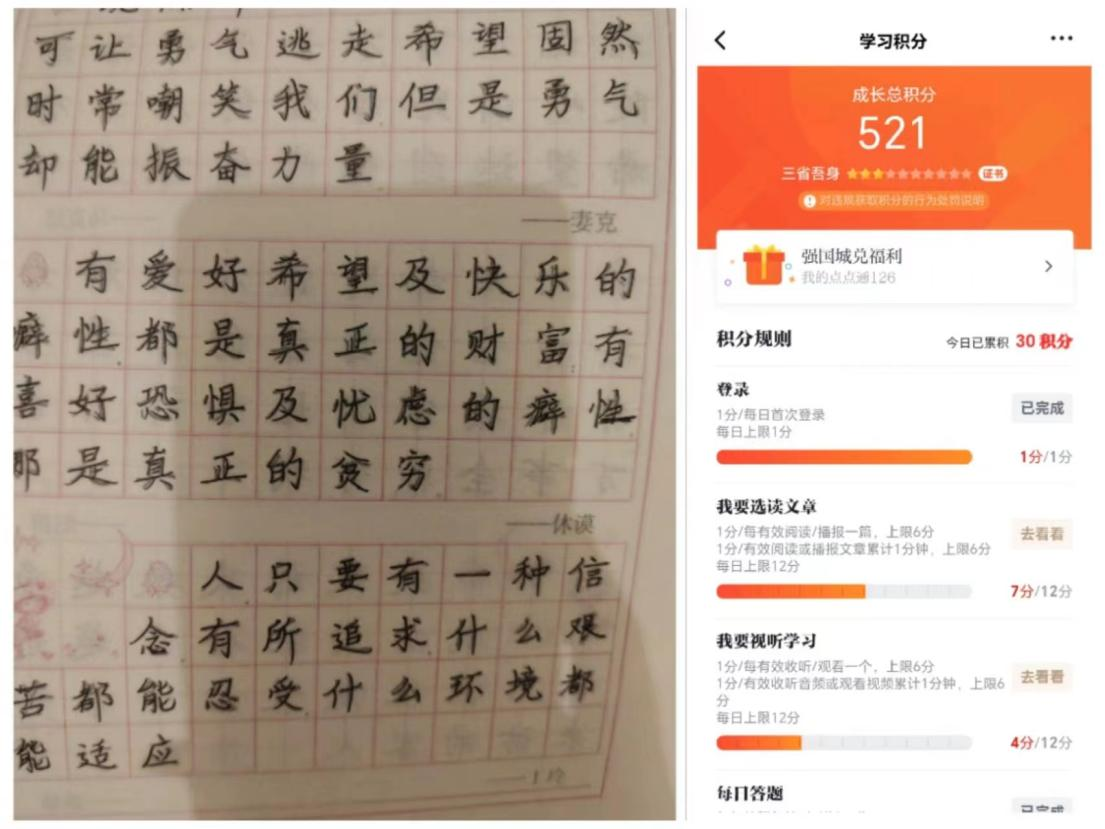 可让勇气逃走希望固然
时常嘲笑我们但是勇气
却能振奋力量
有爱好希望及快乐的
癖性都是真正的财富有
喜好恐惧及忧虑的癖性
那是真正的贫穷
——休谟
人只要有一种信
念有所追求什么艰
苦都能忍受什么环境都
能适应
学习积分
成长总积分
521
三省吾身
证书
对违规获取积分的行为处罚说明
强国城兑福利
我的点点通126
积分规则
今日已累积 30 积分
登录
1分/每日首次登录
每日上限1分
已完成
1分/1分
我要选读文章
1分/每有效阅读/播报一篇，上限6分
1分/有效阅读或播报文章累计1分钟，上限6分
每日上限12分
去看看
7分/12分
我要视听学习
1分/每有效收听/观看一个，上限6分
1分/有效收听音频或观看视频累计1分钟，上限6
分
每日上限12分
去看看
4分/12分
每日答题
已完成